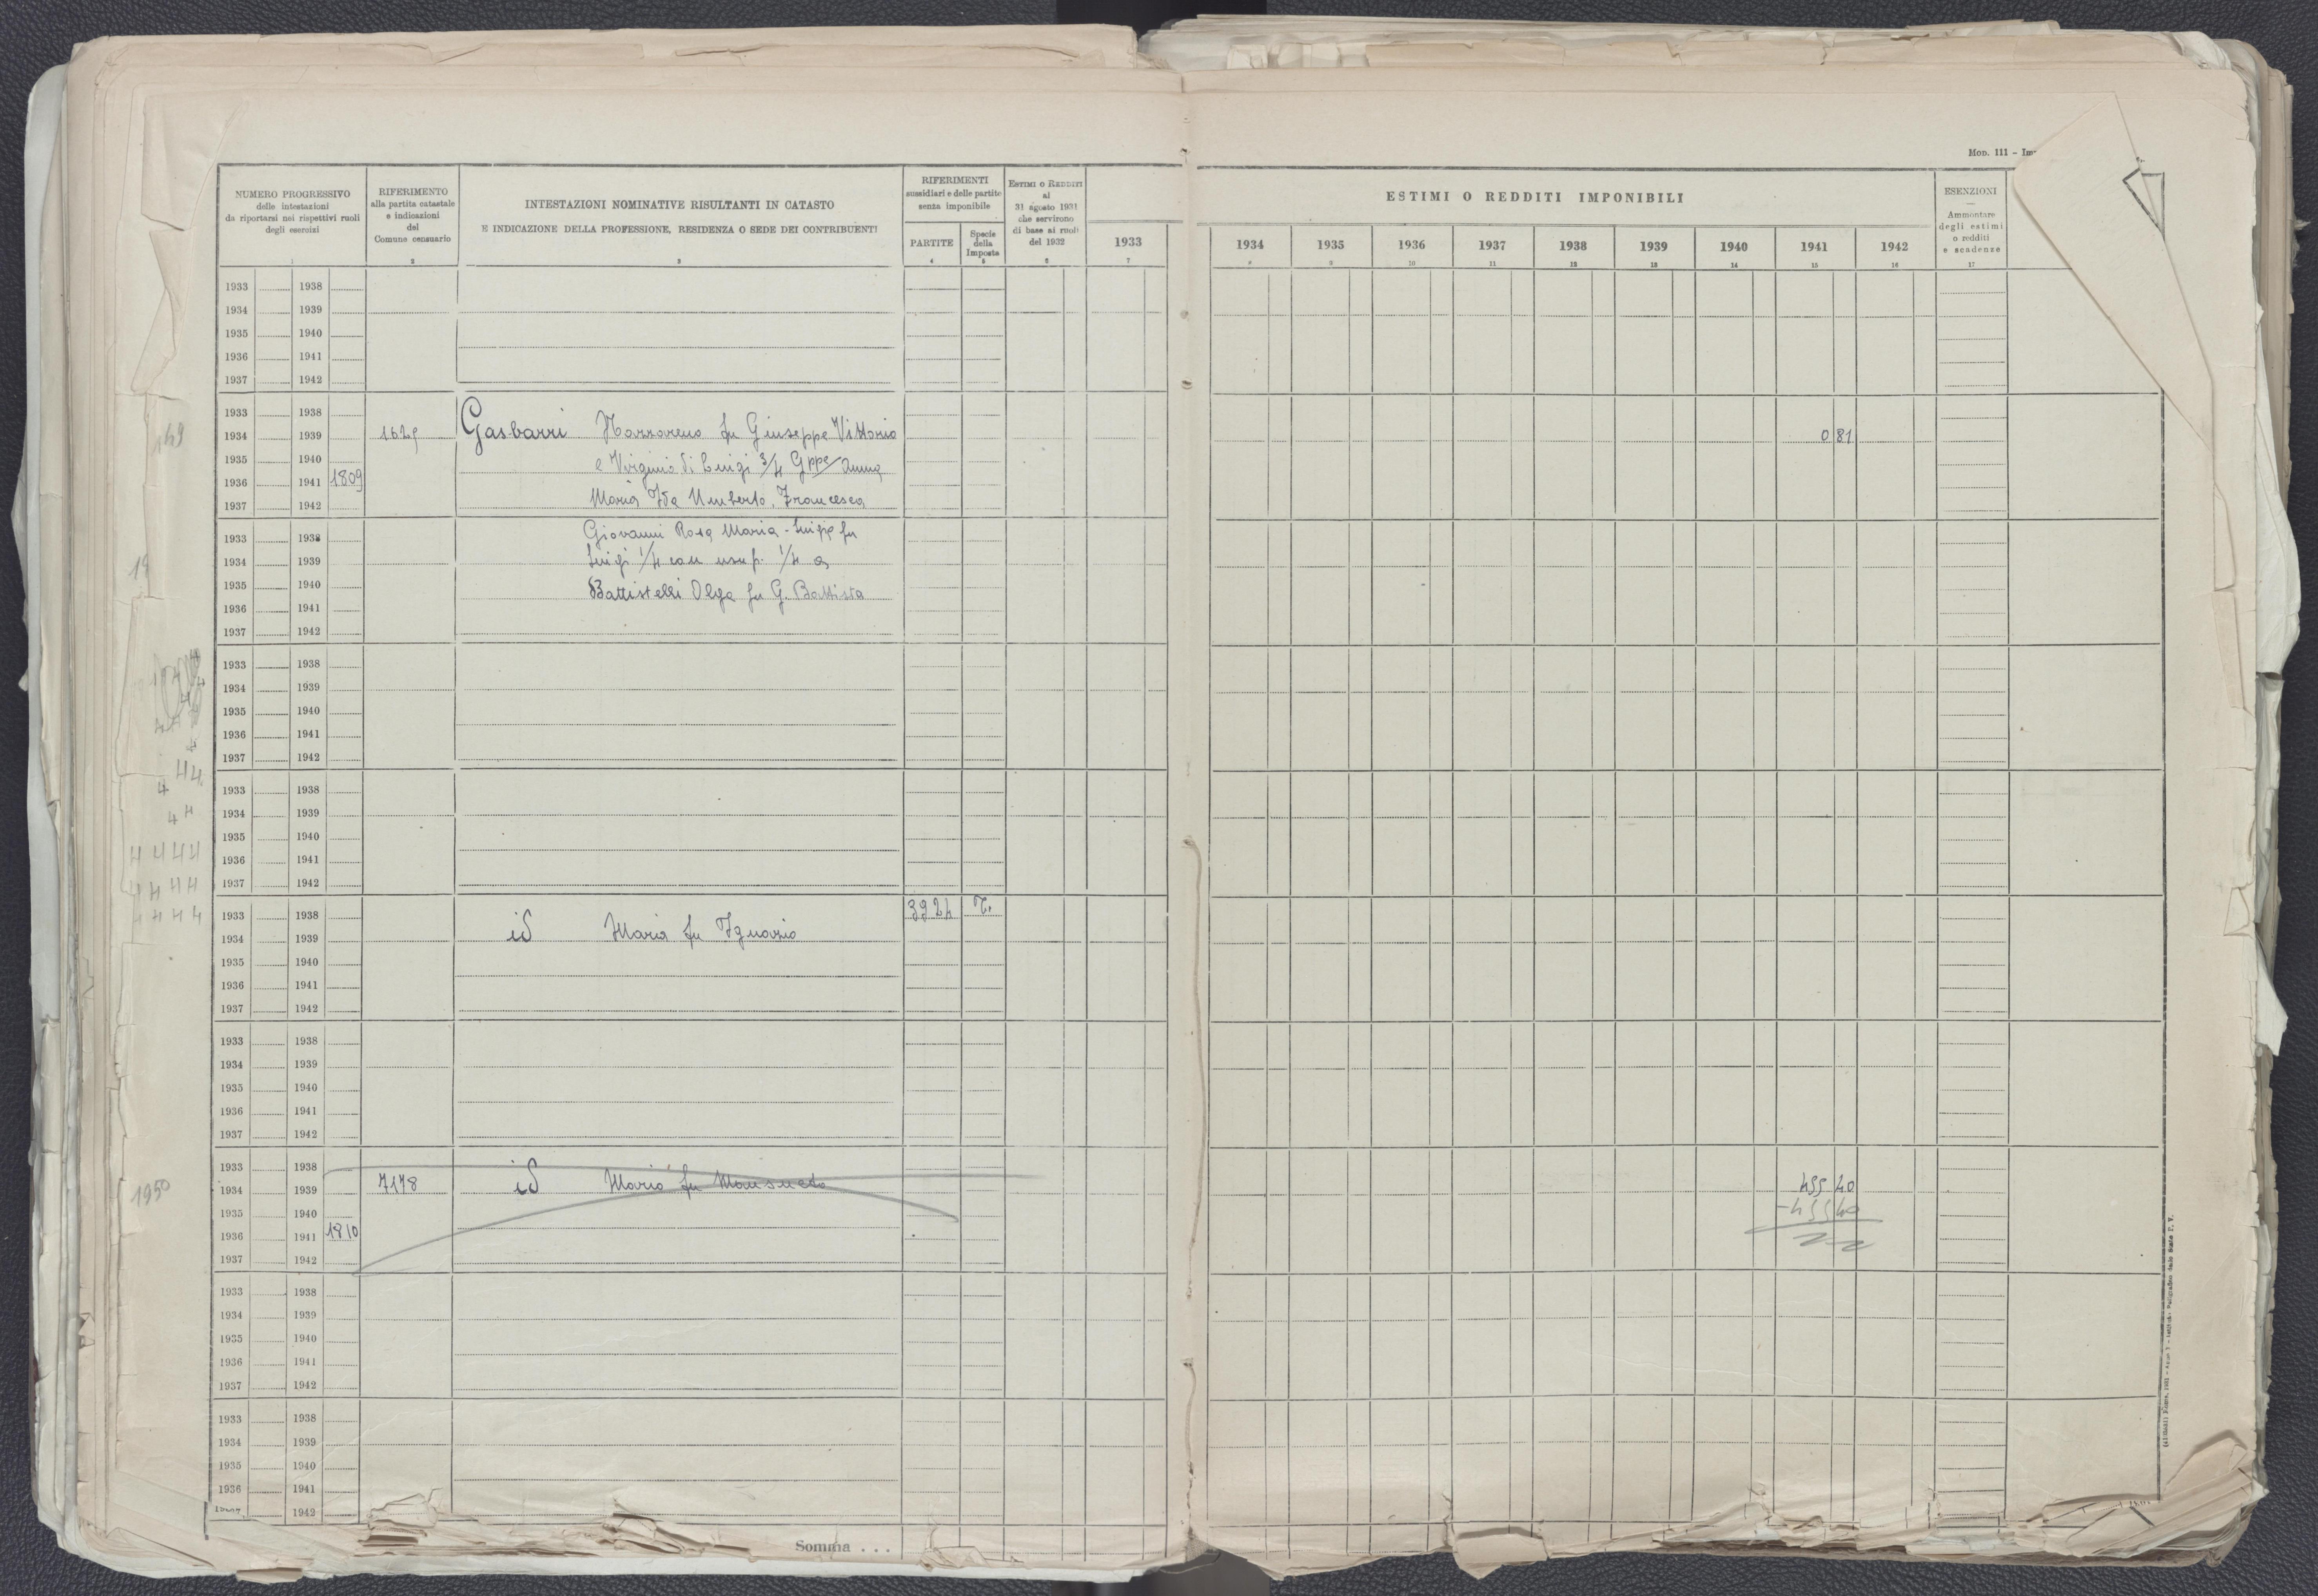 Mod. 111 – Im
NUMERO PROGRESSIVO
delle intestazioni
da riportarsi nei rispettivi ruoli
degli esercizi
1
RIFERIMENTO
alla partita catastale
e indicazioni
del
Comune censuario
2
INTESTAZIONI NOMINATIVE RISULTANTI IN CATASTO
E INDICAZIONE DELLA PROFESSIONE, RESIDENZA O SEDE DEI CONTRIBUENTI
3
RIFERIMENTI
sussidiari e delle partite
senza imponibile
PARTITE
4
Specie
della
Imposta
5
ESTIMI O REDDITI
al
31 agosto 1931
che servirono
di base ai ruoli
del 1932
6
1933
7
ESTIMI O REDDITI IMPONIBILI
1934 1935 1936 1937 1938 1939 1940 1941 1942
8 9 10 11 12 13 14 15 16
ESENZIONI
Ammontare
degli estimi
o redditi
e scadenze
17
1933 1938
1934 1939
1935 1940
1936 1941
1937 1942
1933 1938
1934 1939 Gasbarri Nazzareno fu Giuseppe Vittorio 0 81
1935 1940 e Virginio di Luigi 3/4 Gppe Anna
1936 1941 1809
1937 1942 Maria Ida Umberto, Francesca
1933 1938 Giovanni Rosa Maria-Luigia fu
1934 1939 Luigi 1/4 con usuf. 1/4 a
1935 1940 Battistelli Olga fu G. Battista
1936 1941
1937 1942
1933 1938
1934 1939
1935 1940
1936 1941
1937 1942
44
1933 1938
1934 1939
1935 1940
1936 1941
1937 1942
4444
4444
4444
1933 1938 3924 T.
1934 1939 id Maria fu Ignazio
1935 1940
1936 1941
1937 1942
1933 1938
1934 1939
1935 1940
1936 1941
1937 1942
1933 1938
1950 1934 1939 7178 id Mario fu Mansueto 455 40
1935 1940 -455 40
1936 1941 1810
1937 1942
1933 1938
1934 1939
1935 1940
1936 1941
1937 1942
1933 1938
1934 1939
1935 1940
1936 1941
1942
Somma . . .